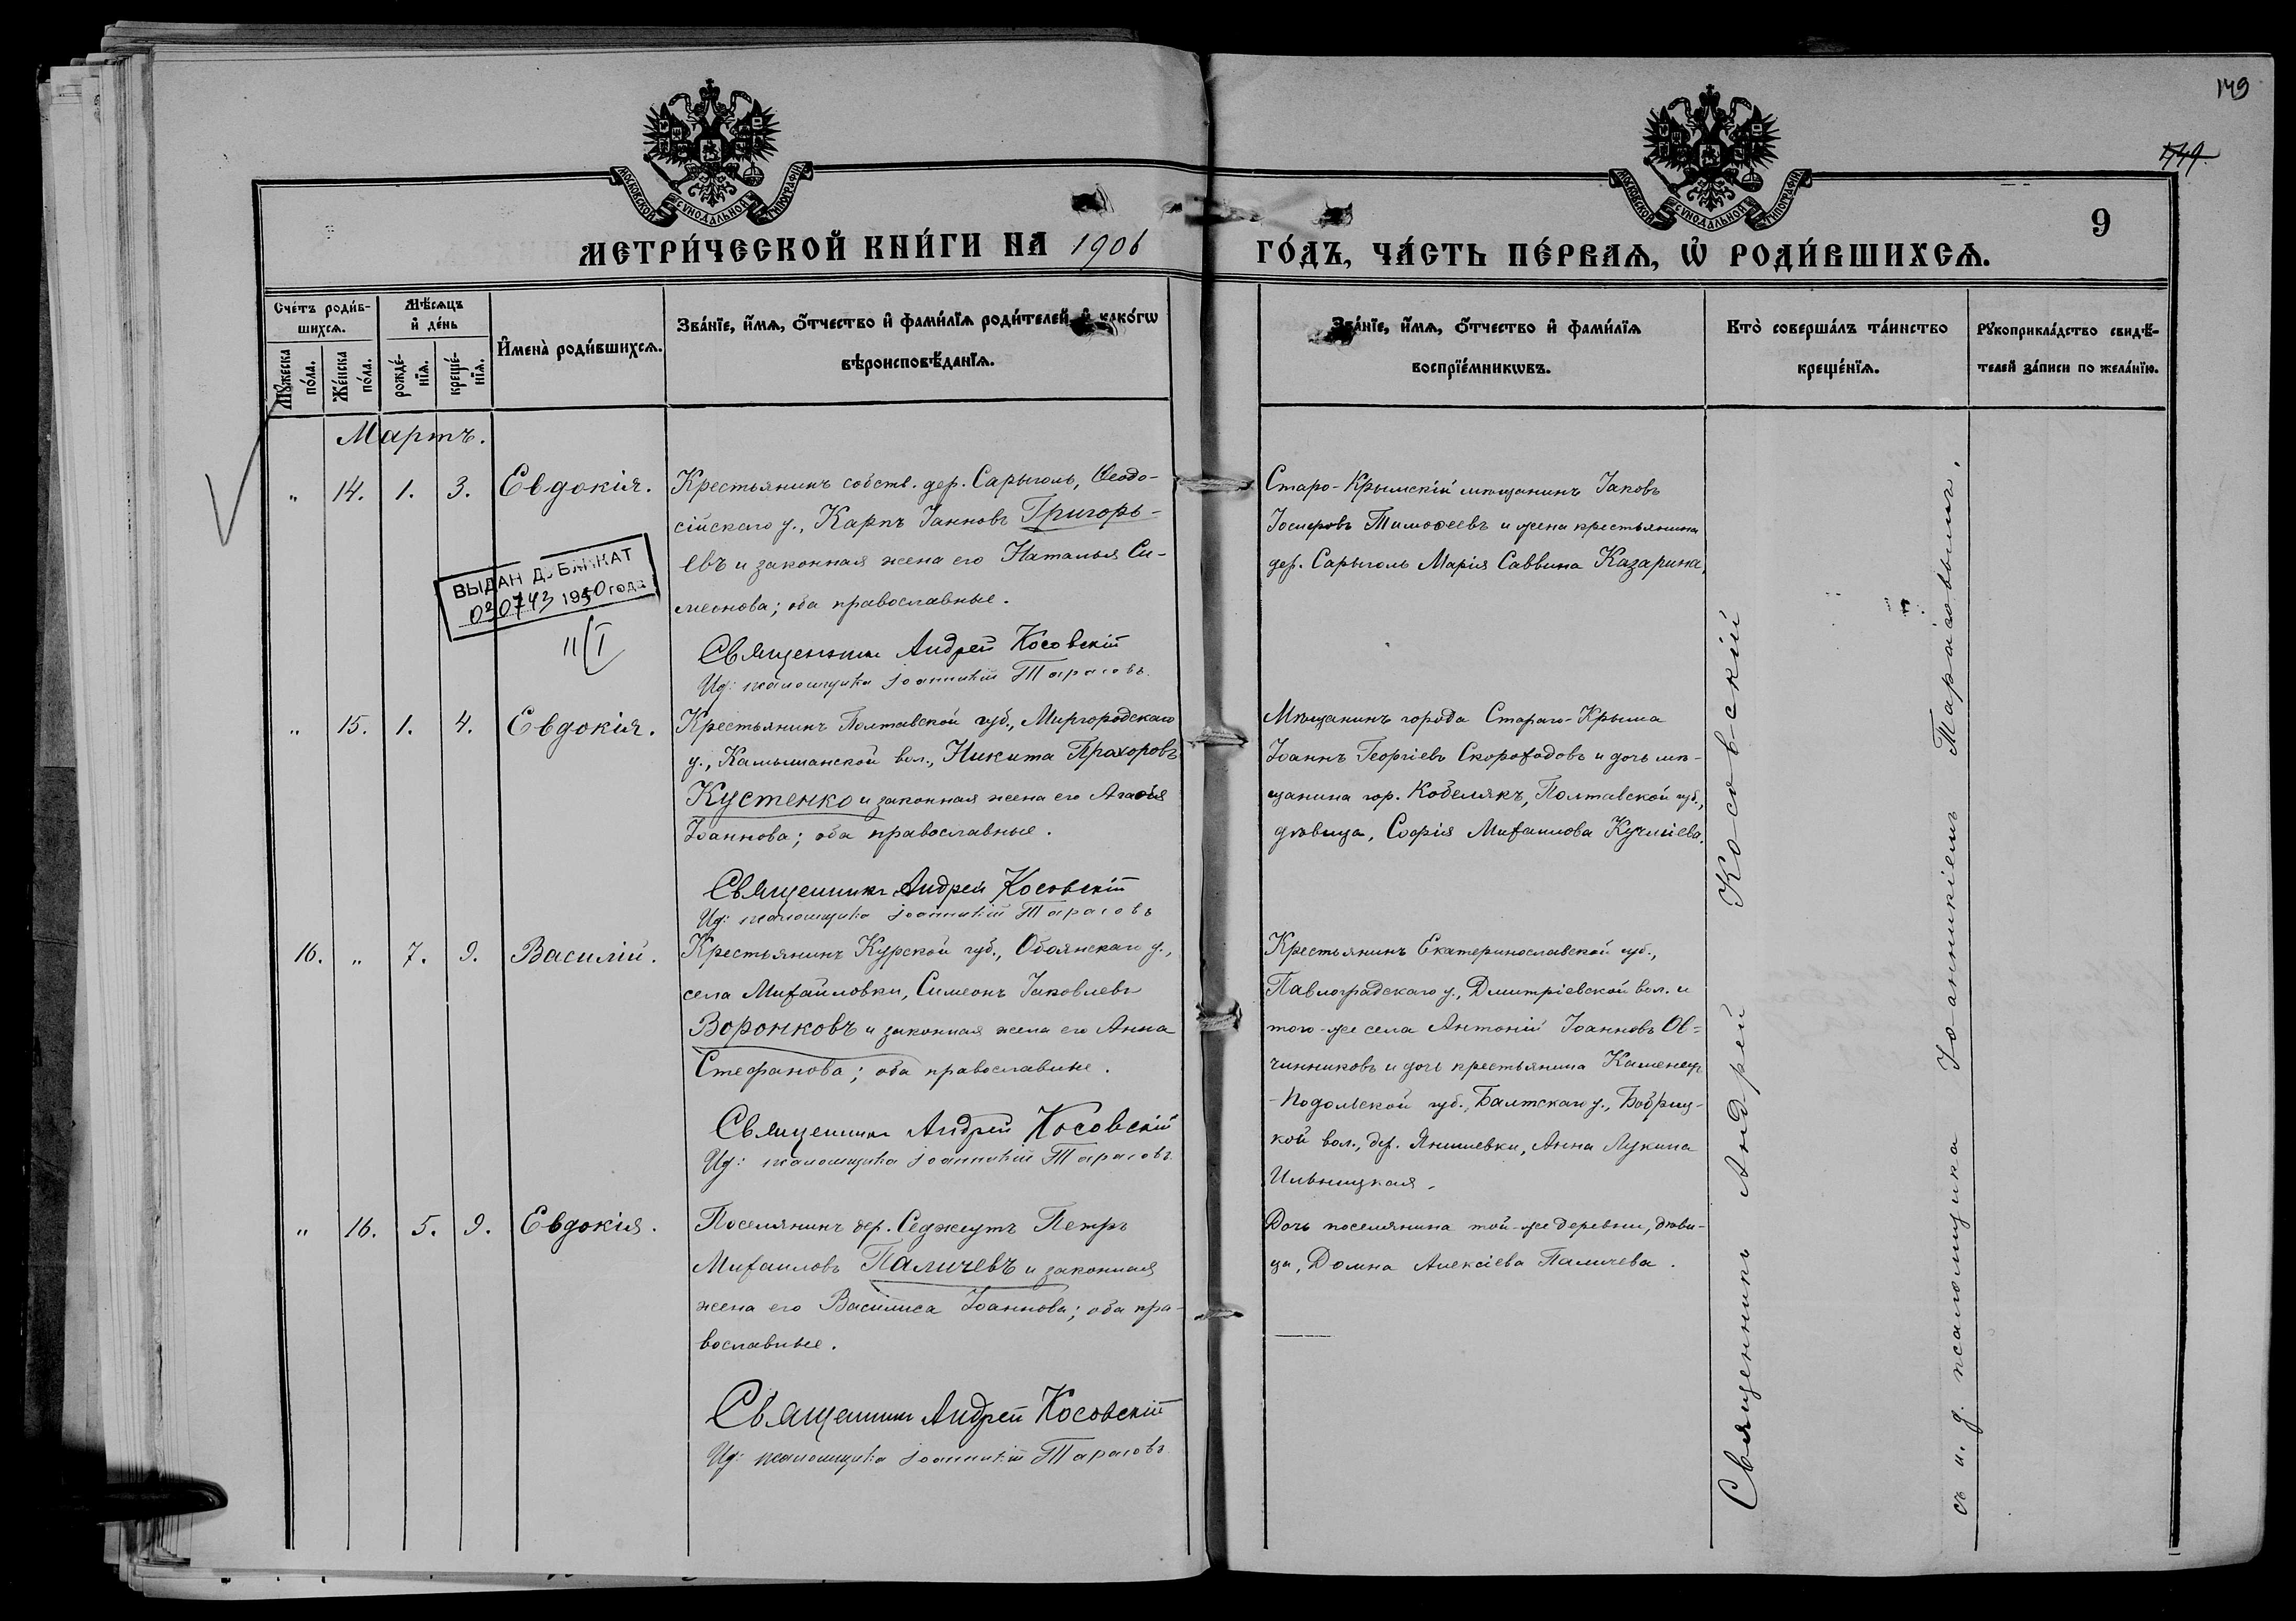 149
149.
МОСКОВСКОЙ СУНОДАЛЬНОЙ ТИПОГРАФІИ
МОСКОВСКОЙ СУНОДАЛЬНОЙ ТИПОГРАФІИ
9
МЕТРИ́ЧЕСКОЙ КНИ́ГИ НА 1906 ГО́ДЪ, ЧА́СТЬ ПЕ́РВАѦ, Ѡ҆ РОДИ́ВШИХСѦ.
Сче́тъ роди́в-
шихсѧ.
Мѣ́сѧцъ
и҆ де́нь
Мꙋ́жеска по́ла.
Же́нска по́ла.
рожде́-
нїѧ.
креще́-
нїѧ.
И҆мена̀ роди́вшихсѧ.
Зва́нїе, и҆́мѧ, ѻ҆́тчество и҆ фами́лїѧ роди́телей, и҆ како́гѡ
вѣроисповѣ́данїѧ.
Зва́нїе, и҆́мѧ, ѻ҆́тчество и҆ фами́лїѧ
воспрїе́мникѡвъ.
Кто̀ соверша́лъ та́инство
креще́нїѧ.
Рꙋкоприкла́дство свидѣ́-
телей за́писи по жела́нїю.
Мартъ.
„ 14. 1. 3. Евдокія.
Крестьянинъ собств. дер. Сарыголь, Ѳеодо-
сійскаго у., Карпъ Іанновъ Григорь-
евъ и законная жена его Наталья Си-
меонова; оба православные.
Священникъ Андрей Косовскій
Ид: псаломщика Іоанникій Тарасовъ.
Старо-Крымскій мѣщанинъ Іаковъ
Іосифовъ Тимоѳеевъ и жена крестьянина
дер. Сарыголь Марія Саввина Казарина,
ВЫДАН ДУБЛИКАТ
030743 1950 года
11/I
„ 15. 1. 4. Евдокія.
Крестьянинъ Полтавской губ., Миргородскаго
у., Камышанской вол., Никита Прохоровъ
Кустенко и законная жена его Агаѳія
Іоаннова; оба православные.
Священникъ Андрей Косовскій
Ид: псаломщика Іоанникій Тарасовъ
Мѣщанинъ города Стараго-Крыма
Іоаннъ Георгіевъ Скороходовъ и дочь мѣ-
щанина гор. Кобелякъ, Полтавской губ.,
дѣвица, Софія Михаилова
16. „ 7. 9. Василій.
Крестьянинъ Курской губ., Обоянскаго у.,
села Михайловки, Симеонъ Іаковлевъ
Воронковъ и законная жена его Анна
Стефанова; оба православные.
Священникъ Андрей Косовскій
Ид: псаломщика Іоанникій Тарасовъ
Крестьянинъ Екатеринославской губ.,
Павлоградскаго у., Дмитріевской вол. и
того-же села Антоній Іоанновъ Ов-
чинниковъ и дочь крестьянина Каменец
-Подольской губ., Балтскаго у., Бобриц-
кой вол., дер. Янишевки, Анна Лукина
Ильницкая.
„ 16. 5. 9. Евдокія.
Поселянинъ дер. Седжеутъ Петръ
Михаиловъ Паличевъ и законная
жена его Василиса Іоаннова; оба пра-
вославные.
Священникъ Андрей Косовскій
Ид: псаломщика Іоанникій Тарасовъ
Дочь поселянина той-же деревни, дѣви-
ца, Домна Алексіева Паличева.
Священникъ Андрей Косовскій
съ и. д. псаломщика Іоанникіемъ Тарасовымъ.